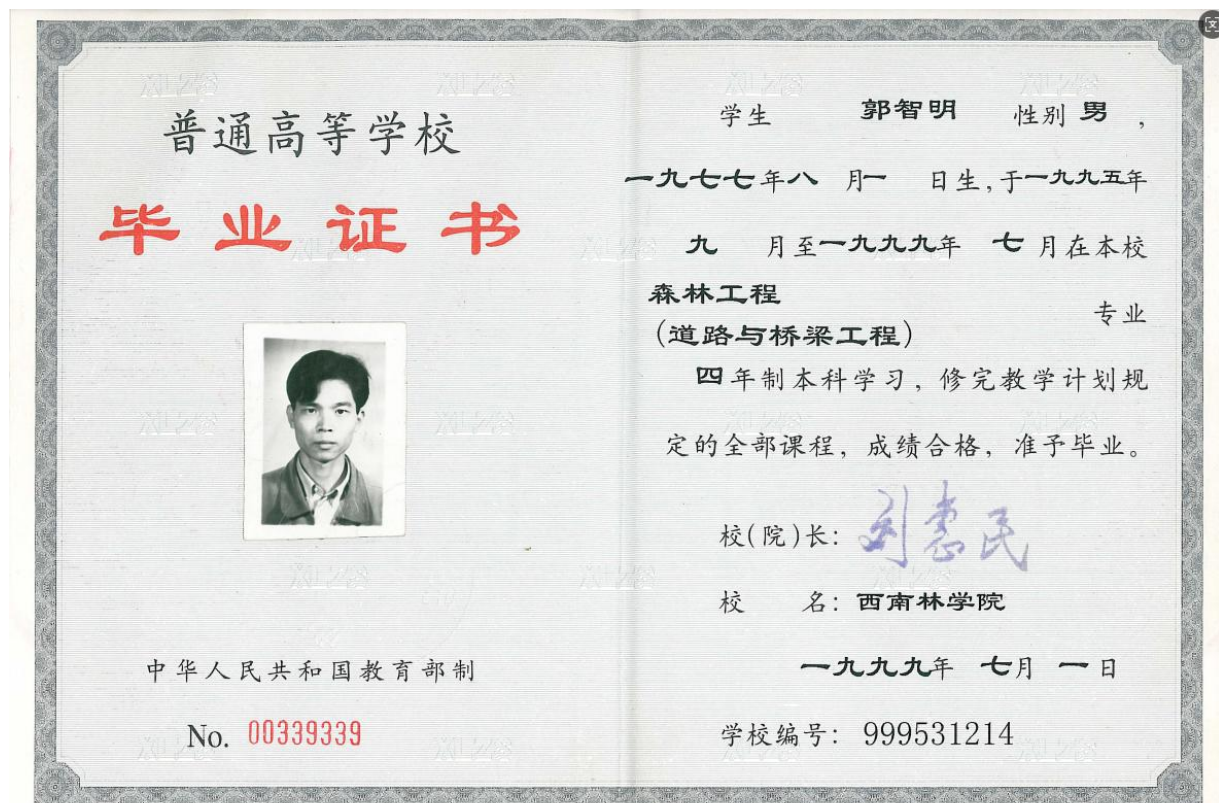 普通高等学校
毕业证书
中华人民共和国教育部制
No. 00339339
学生 郭智明 性别 男 ,
一九七七年八 月一 日生,于一九九五年
九 月至一九九九年 七 月在本校
森林工程
(道路与桥梁工程) 专业
四年制本科学习，修完教学计划规
定的全部课程，成绩合格，准予毕业。
校(院)长: 刘惠民
校 名: 西南林学院
一九九九年 七月 一日
学校编号: 999531214